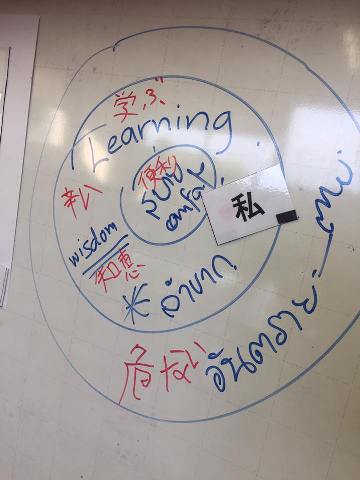 学ぶ
Learning
便利
สบาย
comfort
私
辛い
wisdom
知恵
ลำบาก
危ない
อันตราย